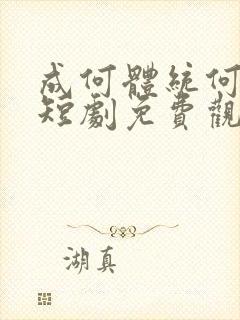 成何體統何
短劇免費觀
湖真